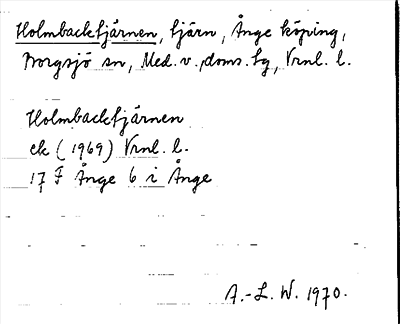 Holmbacktjärnen, tjärn, Ånge köping,
Borgsjö sn, Med. v. doms. tg, Vrnl. l.
Holmbacktjärnen
ek (1969) Vrnl. l.
17 F Ånge 6 i Ånge
A.-L. W. 1970.